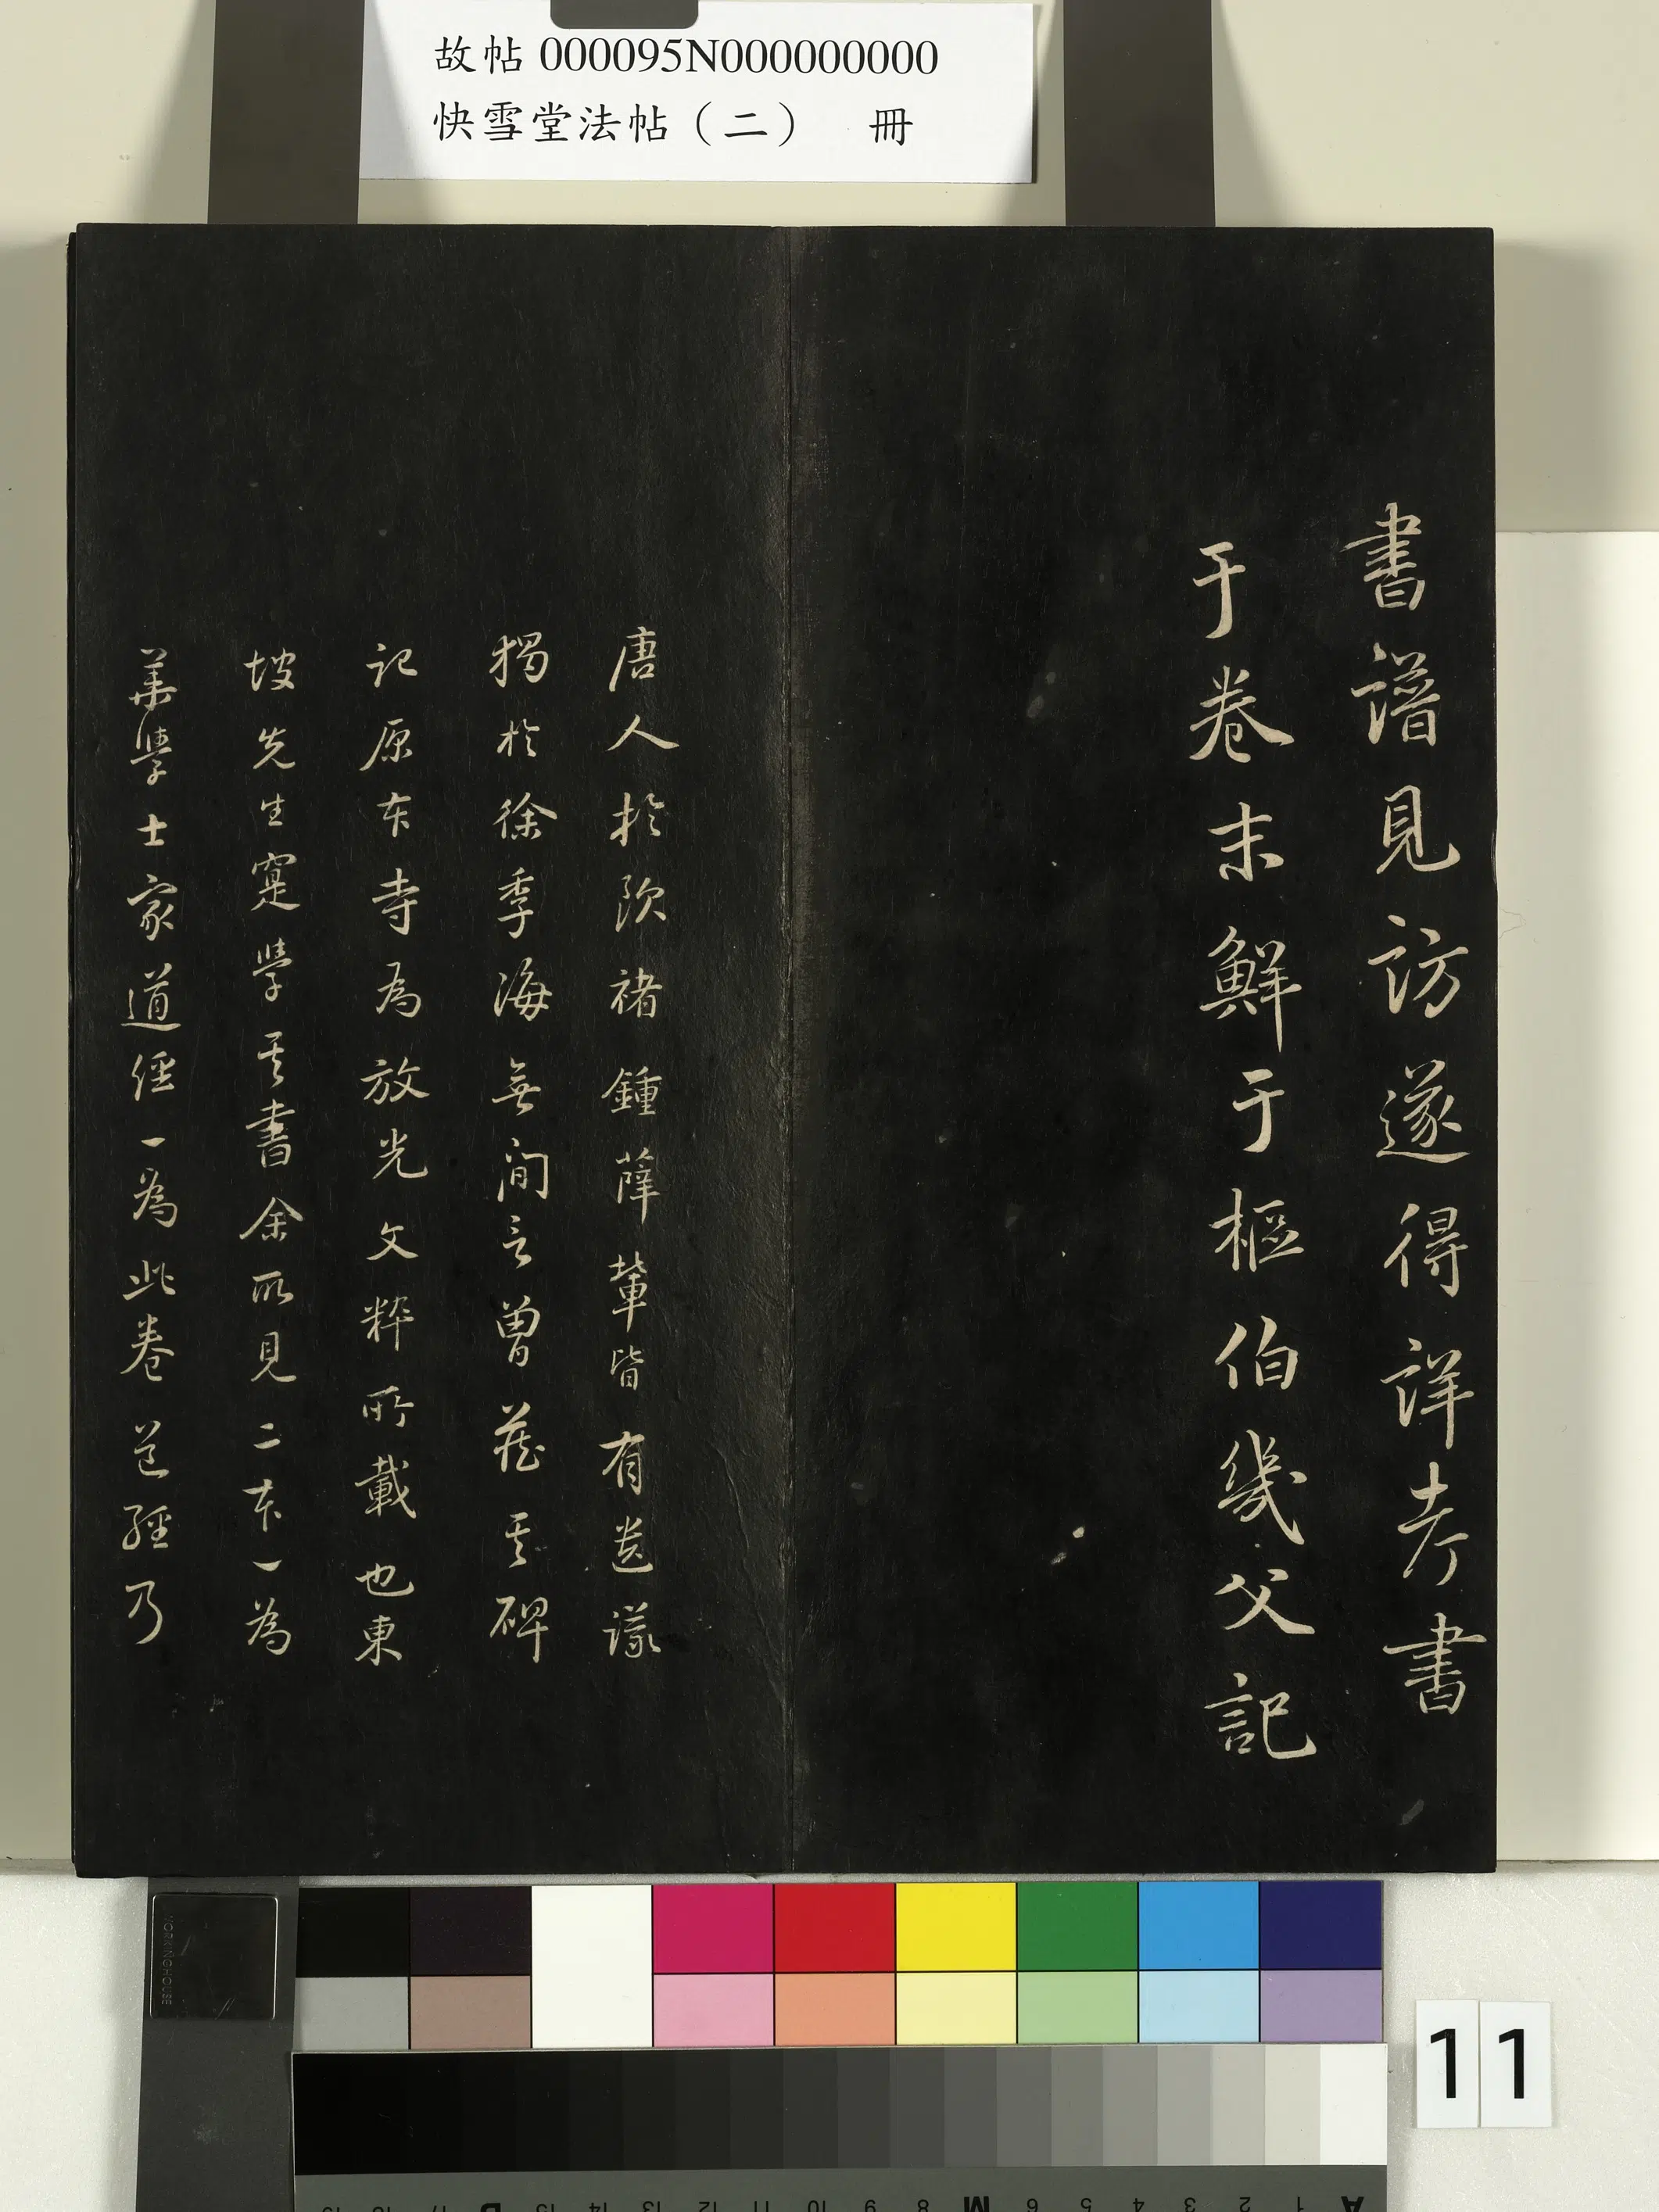 故帖 000095N000000000
快雪堂法帖（二） 冊
書譜見訪遂得詳考書
于卷末鮮于樞伯幾父記
唐人於歐褚鍾薛輩皆有遺議
獨於徐季海無間言曾藏其碑
記原本寺為放光文粹所載也東
坡先生寔學其書余所見二本一為
葉學士家道經一為此卷道經乃
11